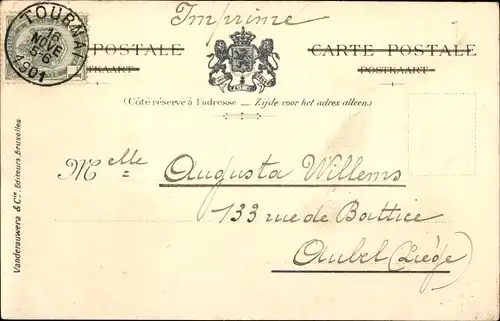 Imprime
TOURNAI
16
NOVE
5-6
1901
POSTALE
POSTKAART
CARTE POSTALE
POSTKAART
(Côté réservé à l'adresse — Zijde voor het adres alleen)
Melle Augusta Willems
133 rue de Battice
Aubel (Liége)
Vanderauwera & Cie, Editeurs, Bruxelles.